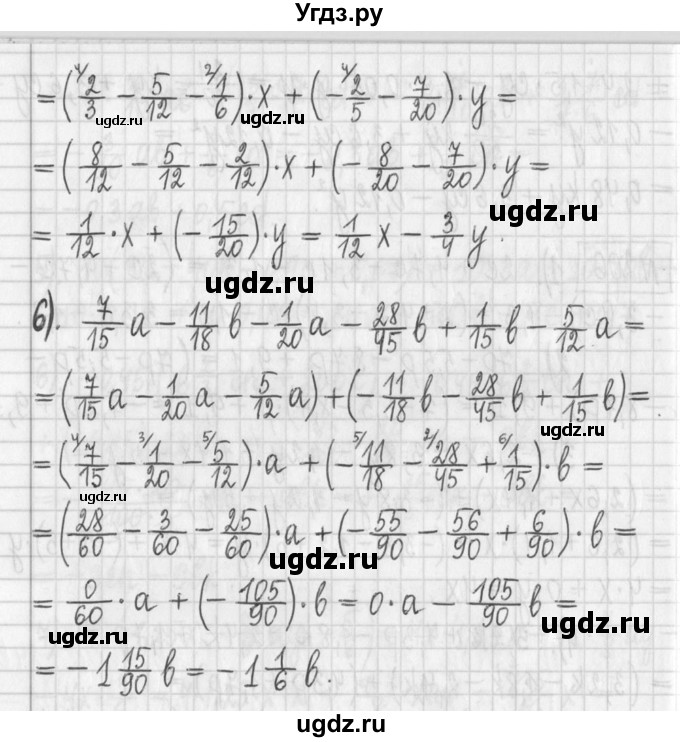 Угдз.ру
= (⁴/2/3 − 5/12 − ²/1/6) · x + (−⁴/2/5 − 7/20) · y =
ugdz.ru ugdz.ru
= (8/12 − 5/12 − 2/12) · x + (−8/20 − 7/20) · y =
ugdz.ru
= 1/12 · x + (−15/20) · y = 1/12 x − 3/4 y.
ugdz.ru
6). 7/15 a − 11/18 b − 1/20 a − 28/45 b + 1/15 b − 5/12 a =
= (7/15 a − 1/20 a − 5/12 a) + (−11/18 b − 28/45 b + 1/15 b) =
= (⁴/7/15 − ³/1/20 − ⁵/5/12) · a + (−⁵/11/18 − ²/28/45 + ⁶/1/15) · b =
ugdz.ru
= (28/60 − 3/60 − 25/60) · a + (−55/90 − 56/90 + 6/90) · b =
ugdz.ru
= 0/60 · a + (−105/90) · b = 0 · a − 105/90 b =
ugdz.ru ugdz.ru
= −1 15/90 b = −1 1/6 b.
ugdz.ru